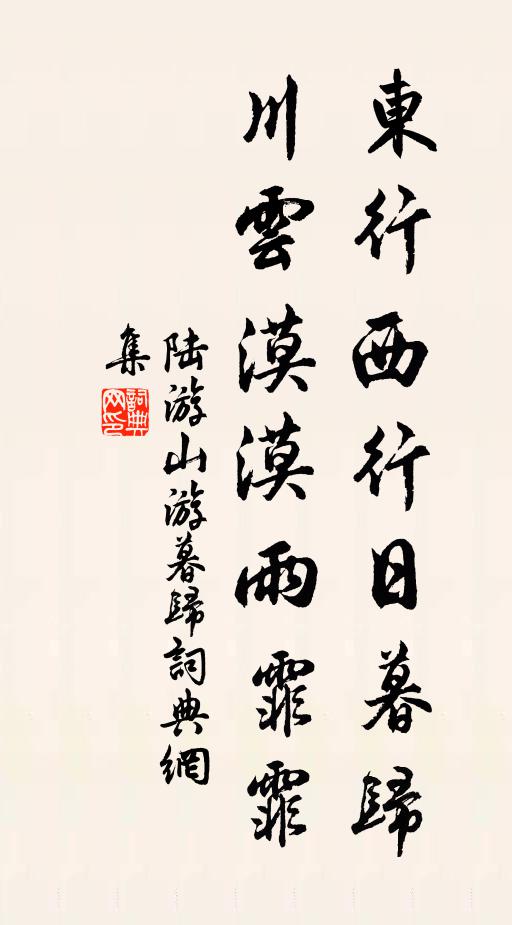 東行西行日暮歸
川雲漠漠雨霏霏
陆游山游暮歸詞典網
集
詞典网印